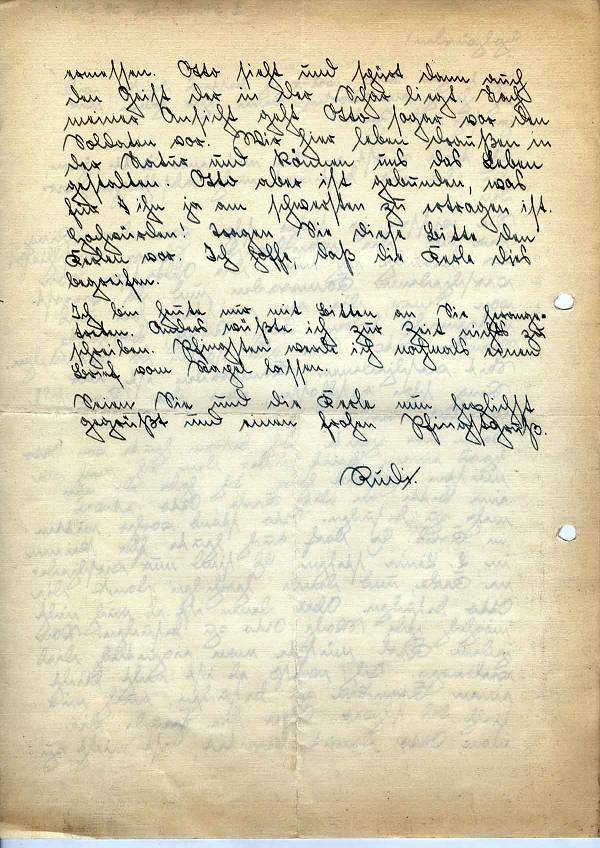 ermessen. Otto sieht und spürt dann auch
den Geist der in der Schar liegt. Nach
meiner Ansicht geht Otto sogar vor den
Soldaten vor. Wir hier leben draußen in
der Natur und können uns das Leben
gestalten. Otto aber ist gebunden, was
für ihn ja am schwersten zu ertragen ist.
Hochwürden! Tragen Sie diese Bitte den
Kerlen vor. Ich hoffe, daß die Kerle dies
begreifen.
Ich bin heute nur mit Bitten an Sie herange-
treten. Anderes wüßte ich zur Zeit nichts zu
schreiben. Pfingsten werde ich nochmals einen
Brief vom Stapel lassen.
Seien Sie und die Kerle nun herzlichst
gegrüßt und einen frohen Pfingstgruß.
Rudi.